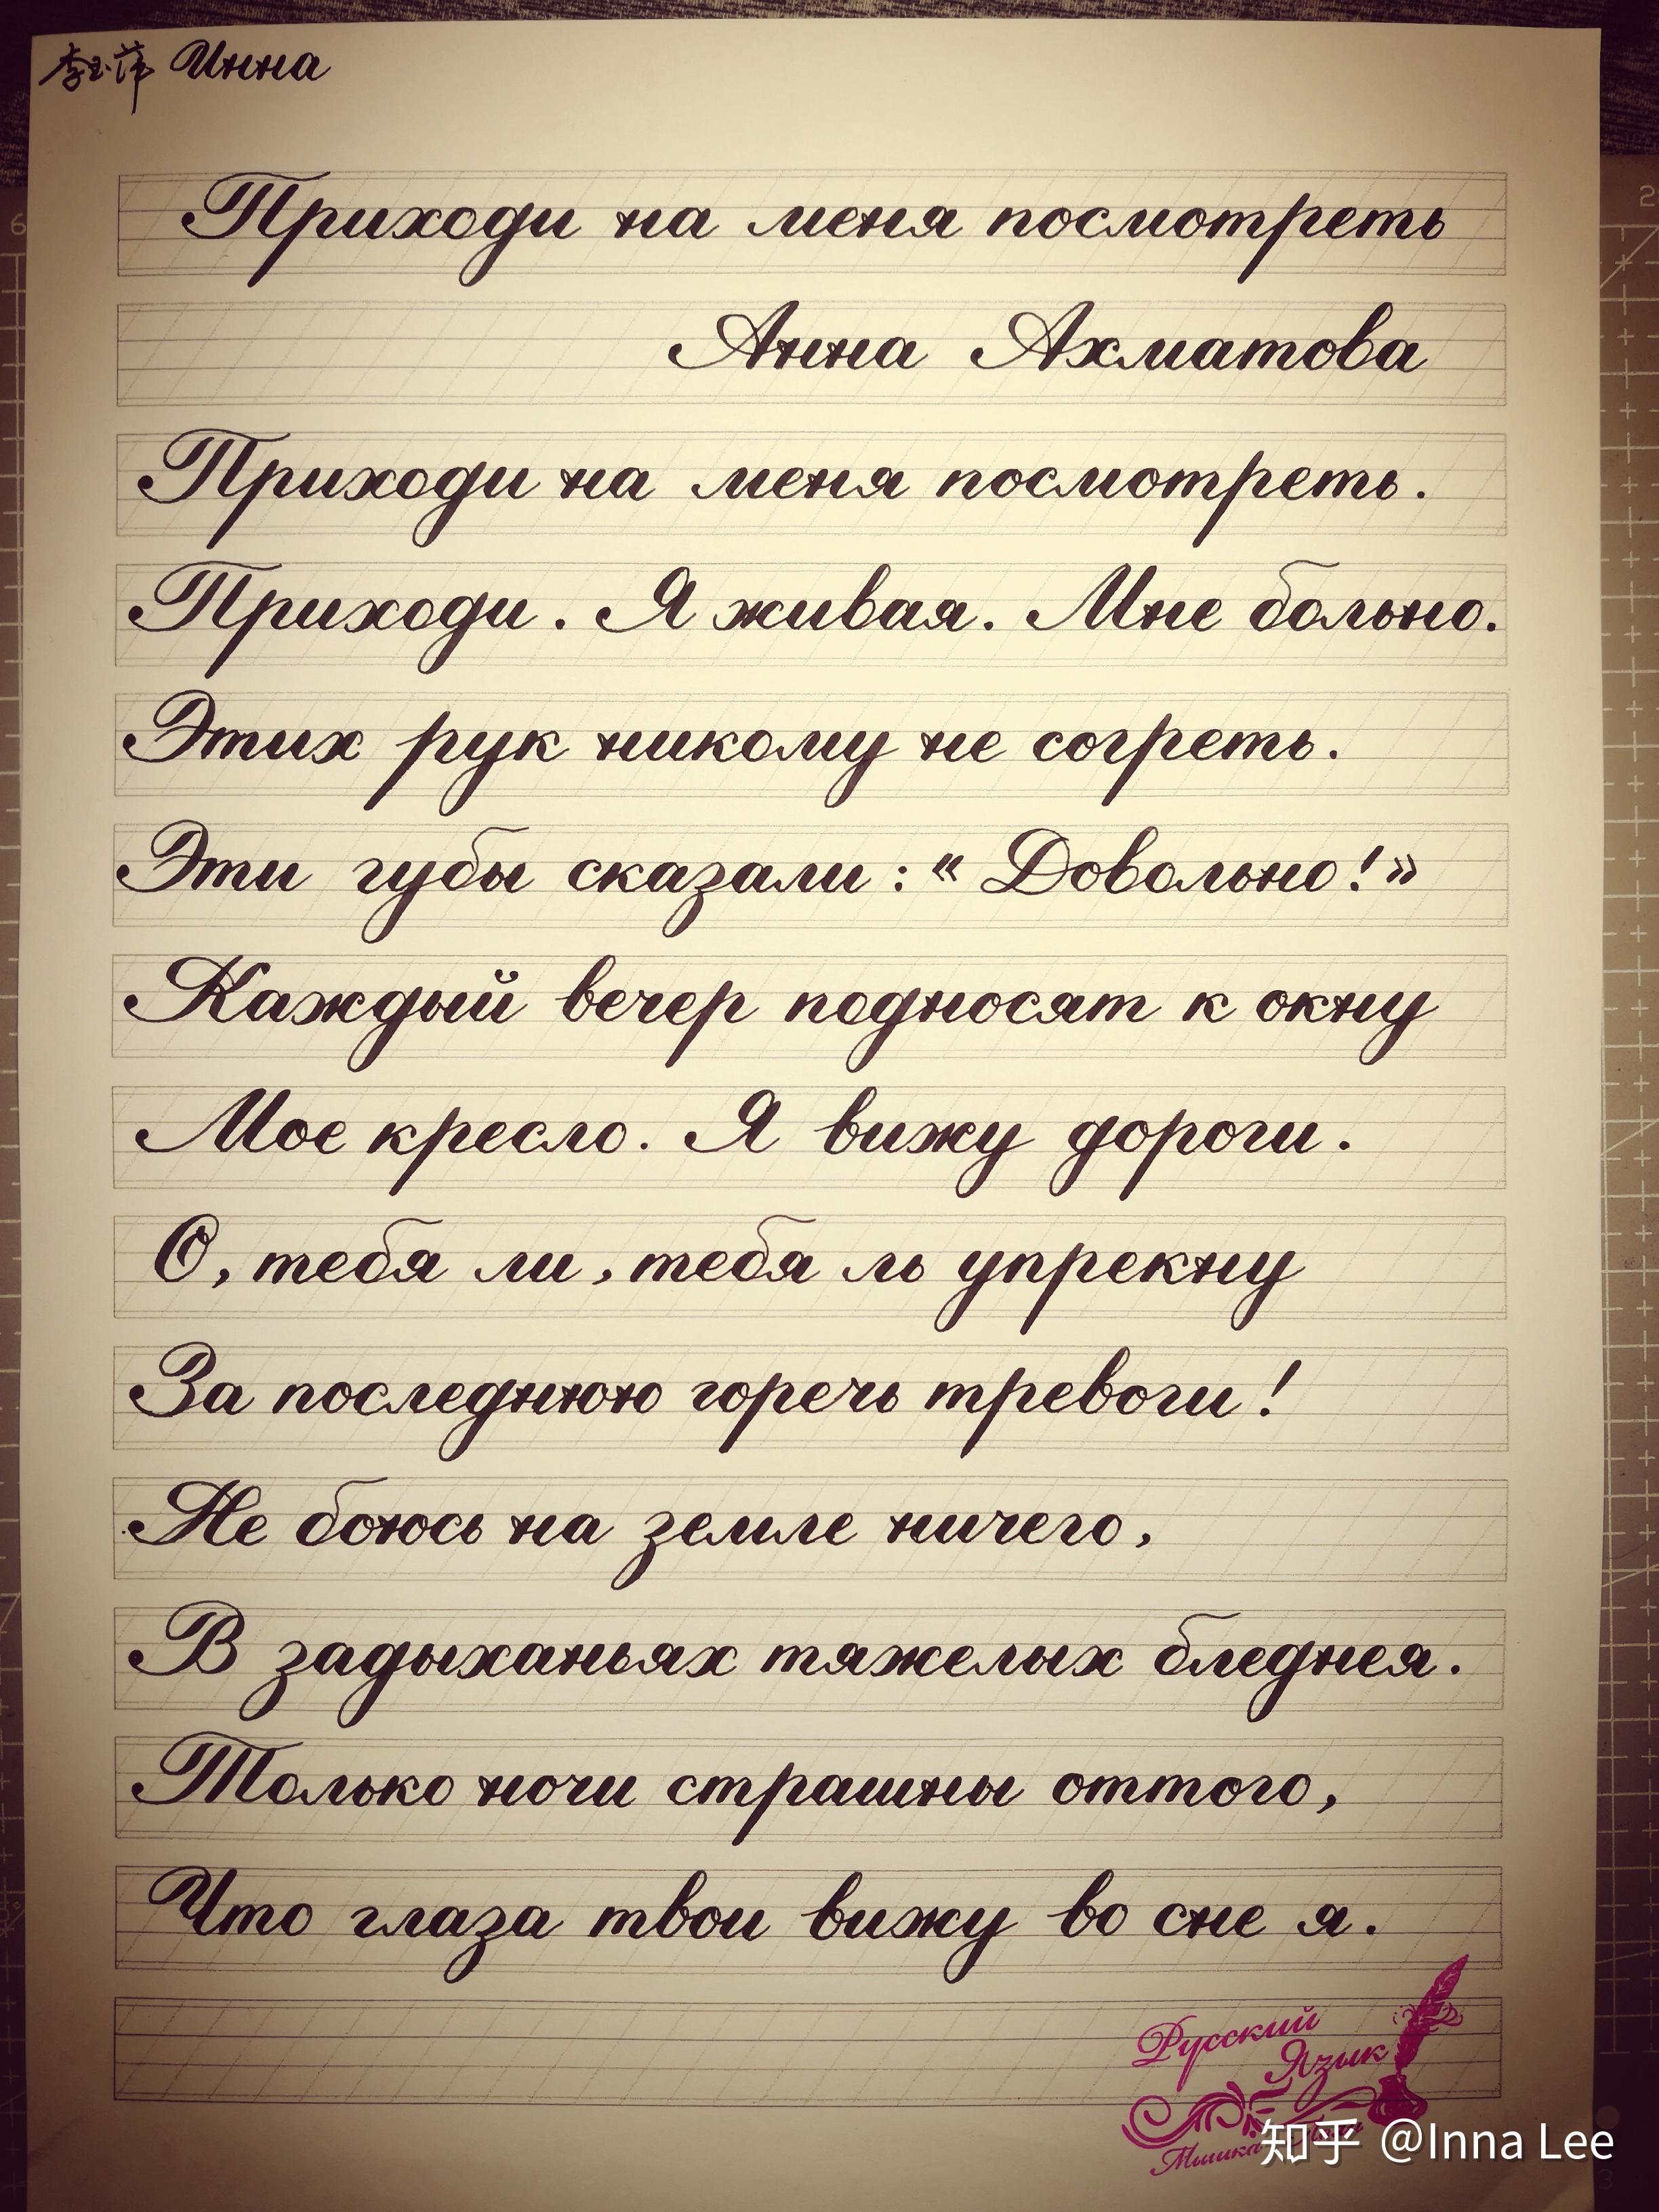 李玉萍 Инна
Приходи на меня посмотреть
Анна Ахматова
Приходи на меня посмотреть.
Приходи. Я живая. Мне больно.
Этих рук никому не согреть.
Эти губы сказали: « Довольно!»
Каждый вечер подносят к окну
Мое кресло. Я вижу дороги.
О, тебя ли, тебя ль упрекну
За последнюю горечь тревоги!
Не боюсь на земле ничего,
В задыханьях тяжелых бледнея.
Только ночи страшны оттого,
Что глаза твои вижу во сне я.
Русский
Язык
Мишка
知乎 @Inna Lee